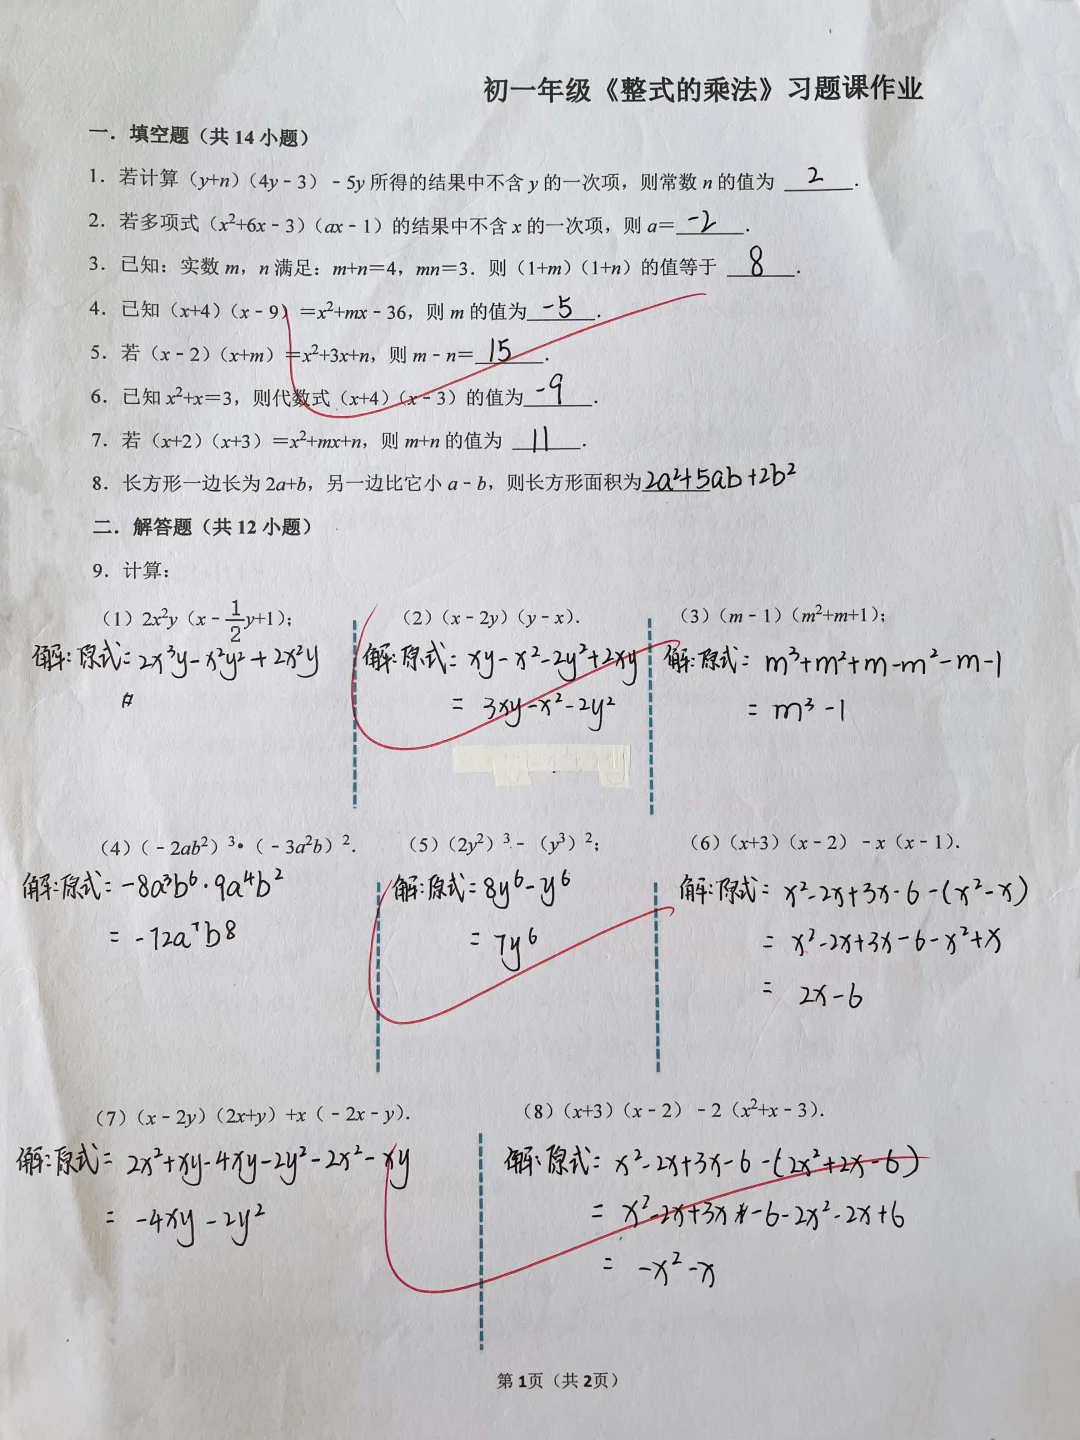 初一年级《整式的乘法》习题课作业
一．填空题（共 14 小题）
1．若计算（y+n）（4y﹣3）﹣5y 所得的结果中不含 y 的一次项，则常数 n 的值为 2 ．
2．若多项式（x²+6x﹣3）（ax﹣1）的结果中不含 x 的一次项，则 a＝ -2 ．
3．已知：实数 m，n 满足：m+n＝4，mn＝3．则（1+m）（1+n）的值等于 8 ．
4．已知（x+4）（x﹣9）＝x²+mx﹣36，则 m 的值为 -5 ．
5．若（x﹣2）（x+m）＝x²+3x+n，则 m﹣n＝ 15 ．
6．已知 x²+x＝3，则代数式（x+4）（x﹣3）的值为 -9 ．
7．若（x+2）（x+3）＝x²+mx+n，则 m+n 的值为 11 ．
8．长方形一边长为 2a+b，另一边比它小 a﹣b，则长方形面积为 2a²+5ab+2b²
二．解答题（共 12 小题）
9．计算：
（1）2x²y（x﹣1/2y+1）；
解：原式＝2x³y-x²y²+2x²y
（2）（x﹣2y）（y﹣x）．
解：原式＝xy-x²-2y²+2xy
＝3xy-x²-2y²
（3）（m﹣1）（m²+m+1）；
解：原式＝m³+m²+m-m²-m-1
＝m³-1
（4）（﹣2ab²）³•（﹣3a²b）²．
解：原式＝-8a³b⁶·9a⁴b²
＝-72a⁷b⁸
（5）（2y²）³﹣（y³）²；
解：原式＝8y⁶-y⁶
＝7y⁶
（6）（x+3）（x﹣2）﹣x（x﹣1）．
解：原式＝x²-2x+3x-6-(x²-x)
＝x²-2x+3x-6-x²+x
＝2x-6
（7）（x﹣2y）（2x+y）+x（﹣2x﹣y）．
解：原式＝2x²+xy-4xy-2y²-2x²-xy
＝-4xy-2y²
（8）（x+3）（x﹣2）﹣2（x²+x﹣3）．
解：原式＝x²-2x+3x-6-(2x²+2x-6)
＝x²-2x+3x-6-2x²-2x+6
＝-x²-x
第 1页（共 2页）